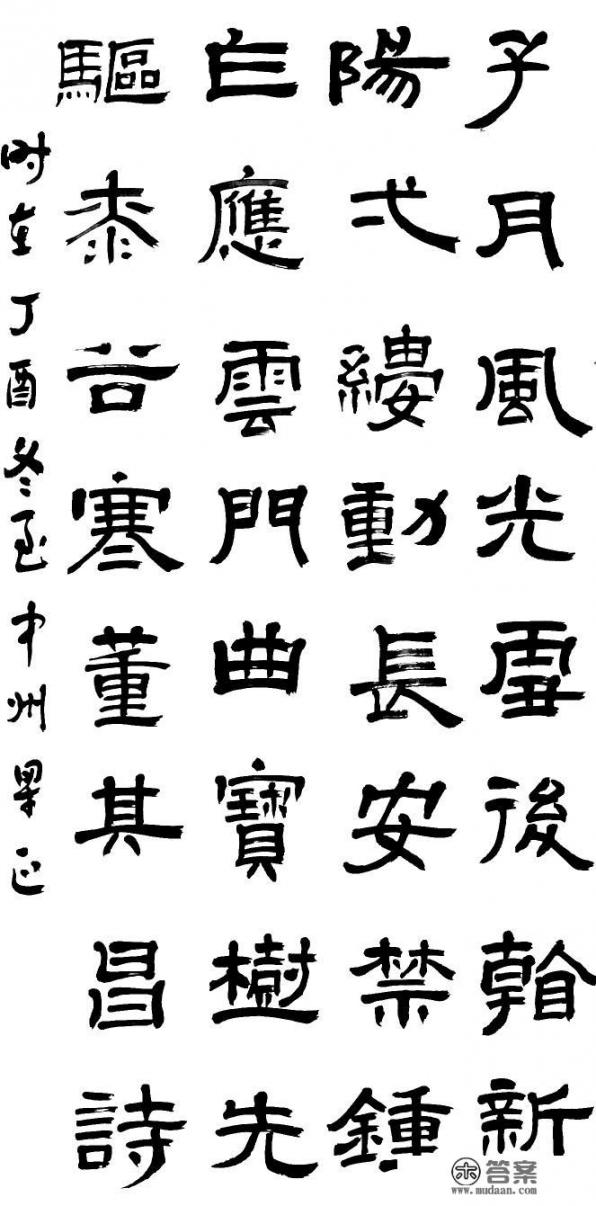 子月風光雪後看新
陽弌縷動長安禁鍾
乍應雲門曲寶樹先
驅黍谷寒董其昌詩
时在丁酉冬至中州
答案
www.mudaan.com